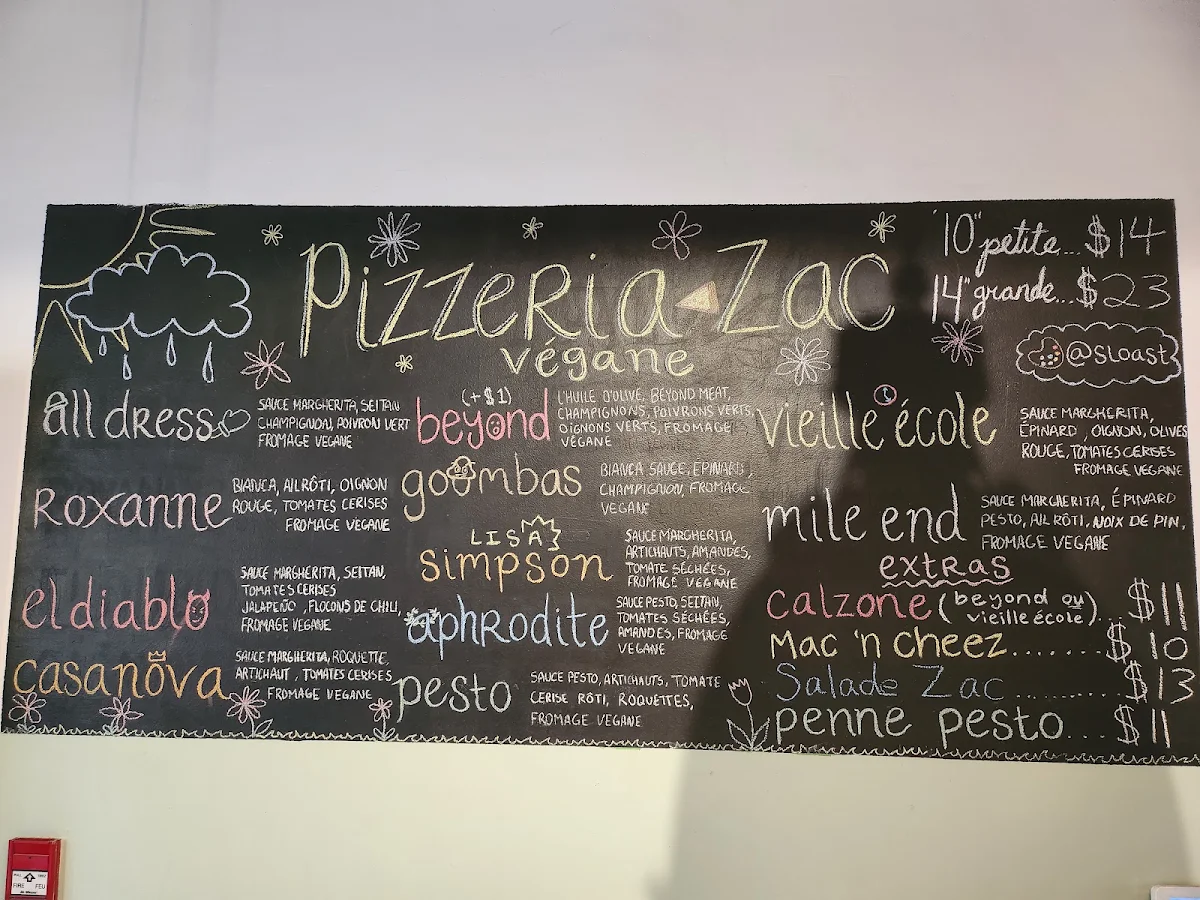 Pizzeria Zac
végane
10" petite... $14
14" grande... $23
@sloast
all dress
SAUCE MARGHERITA, SEITAN
CHAMPIGNON, POIVRON VERT
FROMAGE VEGANE
Roxanne
BIANCA, AIL RÔTI, OIGNON
ROUGE, TOMATES CERISES
FROMAGE VEGANE
el diablo
SAUCE MARGHERITA, SEITAN,
TOMATES CERISES
JALAPEÑO , FLOCONS DE CHILI,
FROMAGE VEGANE
casanova
SAUCE MARGHERITA, ROQUETTE,
ARTICHAUT , TOMATES CERISES
FROMAGE VEGANE
(+$1)
beyond
L'HUILE D'OLIVE, BEYOND MEAT,
CHAMPIGNONS, POIVRONS VERTS,
OIGNONS VERTS, FROMAGE
VÉGANE
goombas
BIANCA SAUCE, ÉPINARD ,
CHAMPIGNON, FROMAGE
VEGANE
LISA
simpson
SAUCE MARGHERITA,
ARTICHAUTS, AMANDES,
TOMATE SÉCHÉES,
FROMAGE VEGANE
aphrodite
SAUCE PESTO, SEITAN,
TOMATES SÉCHÉES,
AMANDES, FROMAGE
VEGANE
pesto
SAUCE PESTO, ARTICHAUTS, TOMATE
CERISE RÔTI, ROQUETTES,
FROMAGE VEGANE
vieille école
SAUCE MARGHERITA,
ÉPINARD , OIGNON, OLIVES
ROUGE, TOMATES CERISES
FROMAGE VEGANE
mile end
SAUCE MARGHERITA, ÉPINARD
PESTO, AIL RÔTI, NOIX DE PIN,
FROMAGE VEGANE
extras
calzone (beyond ou vieille école). $11
Mac 'n cheez....... $10
Salade Zac ......... $13
penne pesto... $11
FIRE FEU